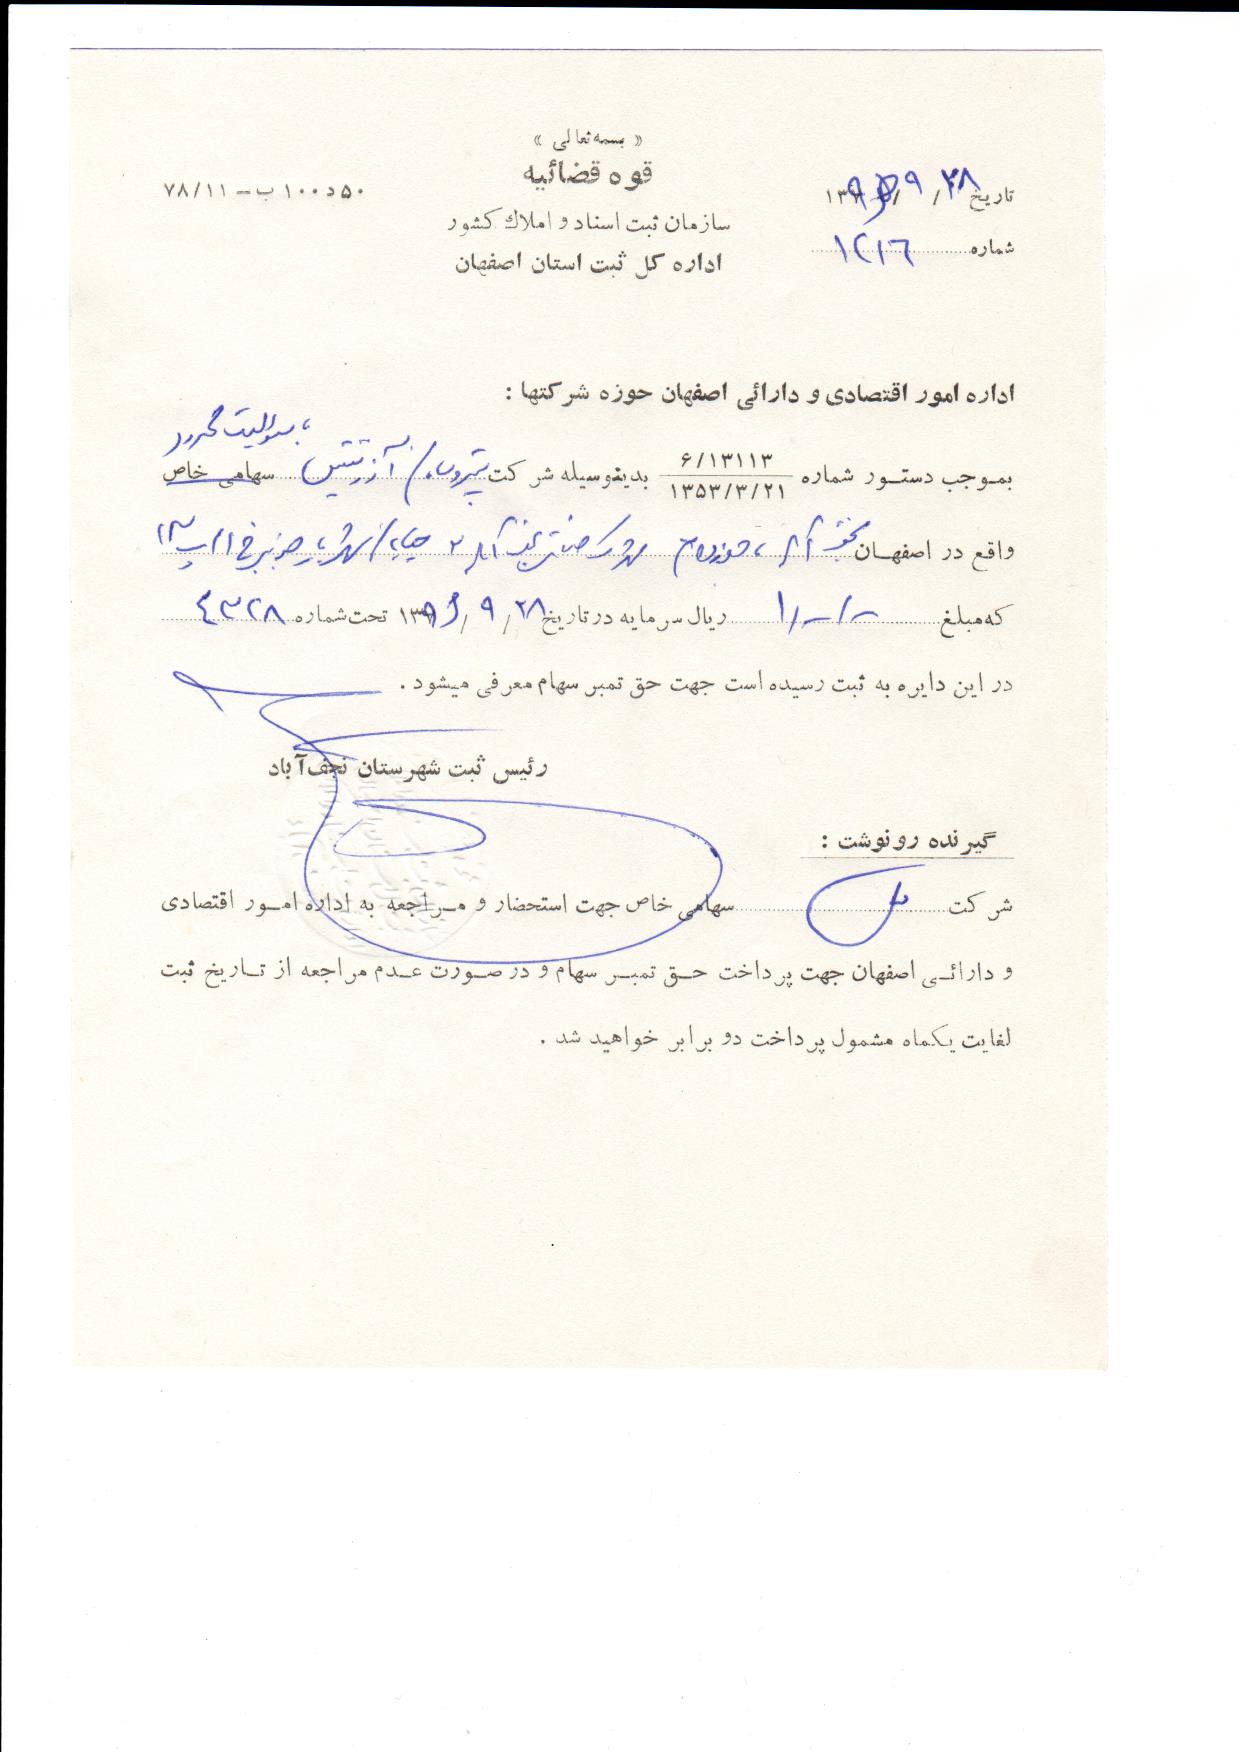 « بسمه تعالی »
قوه قضائیه
سازمان ثبت اسناد و املاک کشور
اداره کل ثبت استان اصفهان
تاریخ ۲۸ / ۹ /
شماره ۱۲۱۶
۵۰ د ۱۰۰ ب – ۷۸/۱۱
اداره امور اقتصادی و دارائی اصفهان حوزه شرکتها :
با مسئولیت محدود
بموجب دستور شماره ۶/۱۳۱۱۳ ۱۳۵۳/۳/۲۱ بدینوسیله شرکت سهامی خاص
واقع در اصفهان نجف آباد شهرک صنعتی نجف آباد ۲ خیابان
که مبلغ ریال سرمایه در تاریخ ۲۸ / ۹ / تحت شماره ۴۳۲۸
در این دایره به ثبت رسیده است جهت حق تمبر سهام معرفی میشود .
رئیس ثبت شهرستان نجف‌آباد
گیرنده رونوشت :
شرکت سهامی خاص جهت استحضار و مراجعه به اداره امور اقتصادی
و دارائی اصفهان جهت پرداخت حق تمبر سهام و در صورت عدم مراجعه از تاریخ ثبت
لغایت یکماه مشمول پرداخت دو برابر خواهید شد .